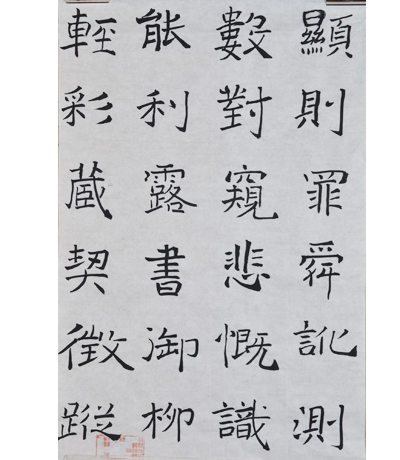 顯則罪舜訛測
數對窺悲慨識
能利露書御柳
輕彩藏契徵蹤